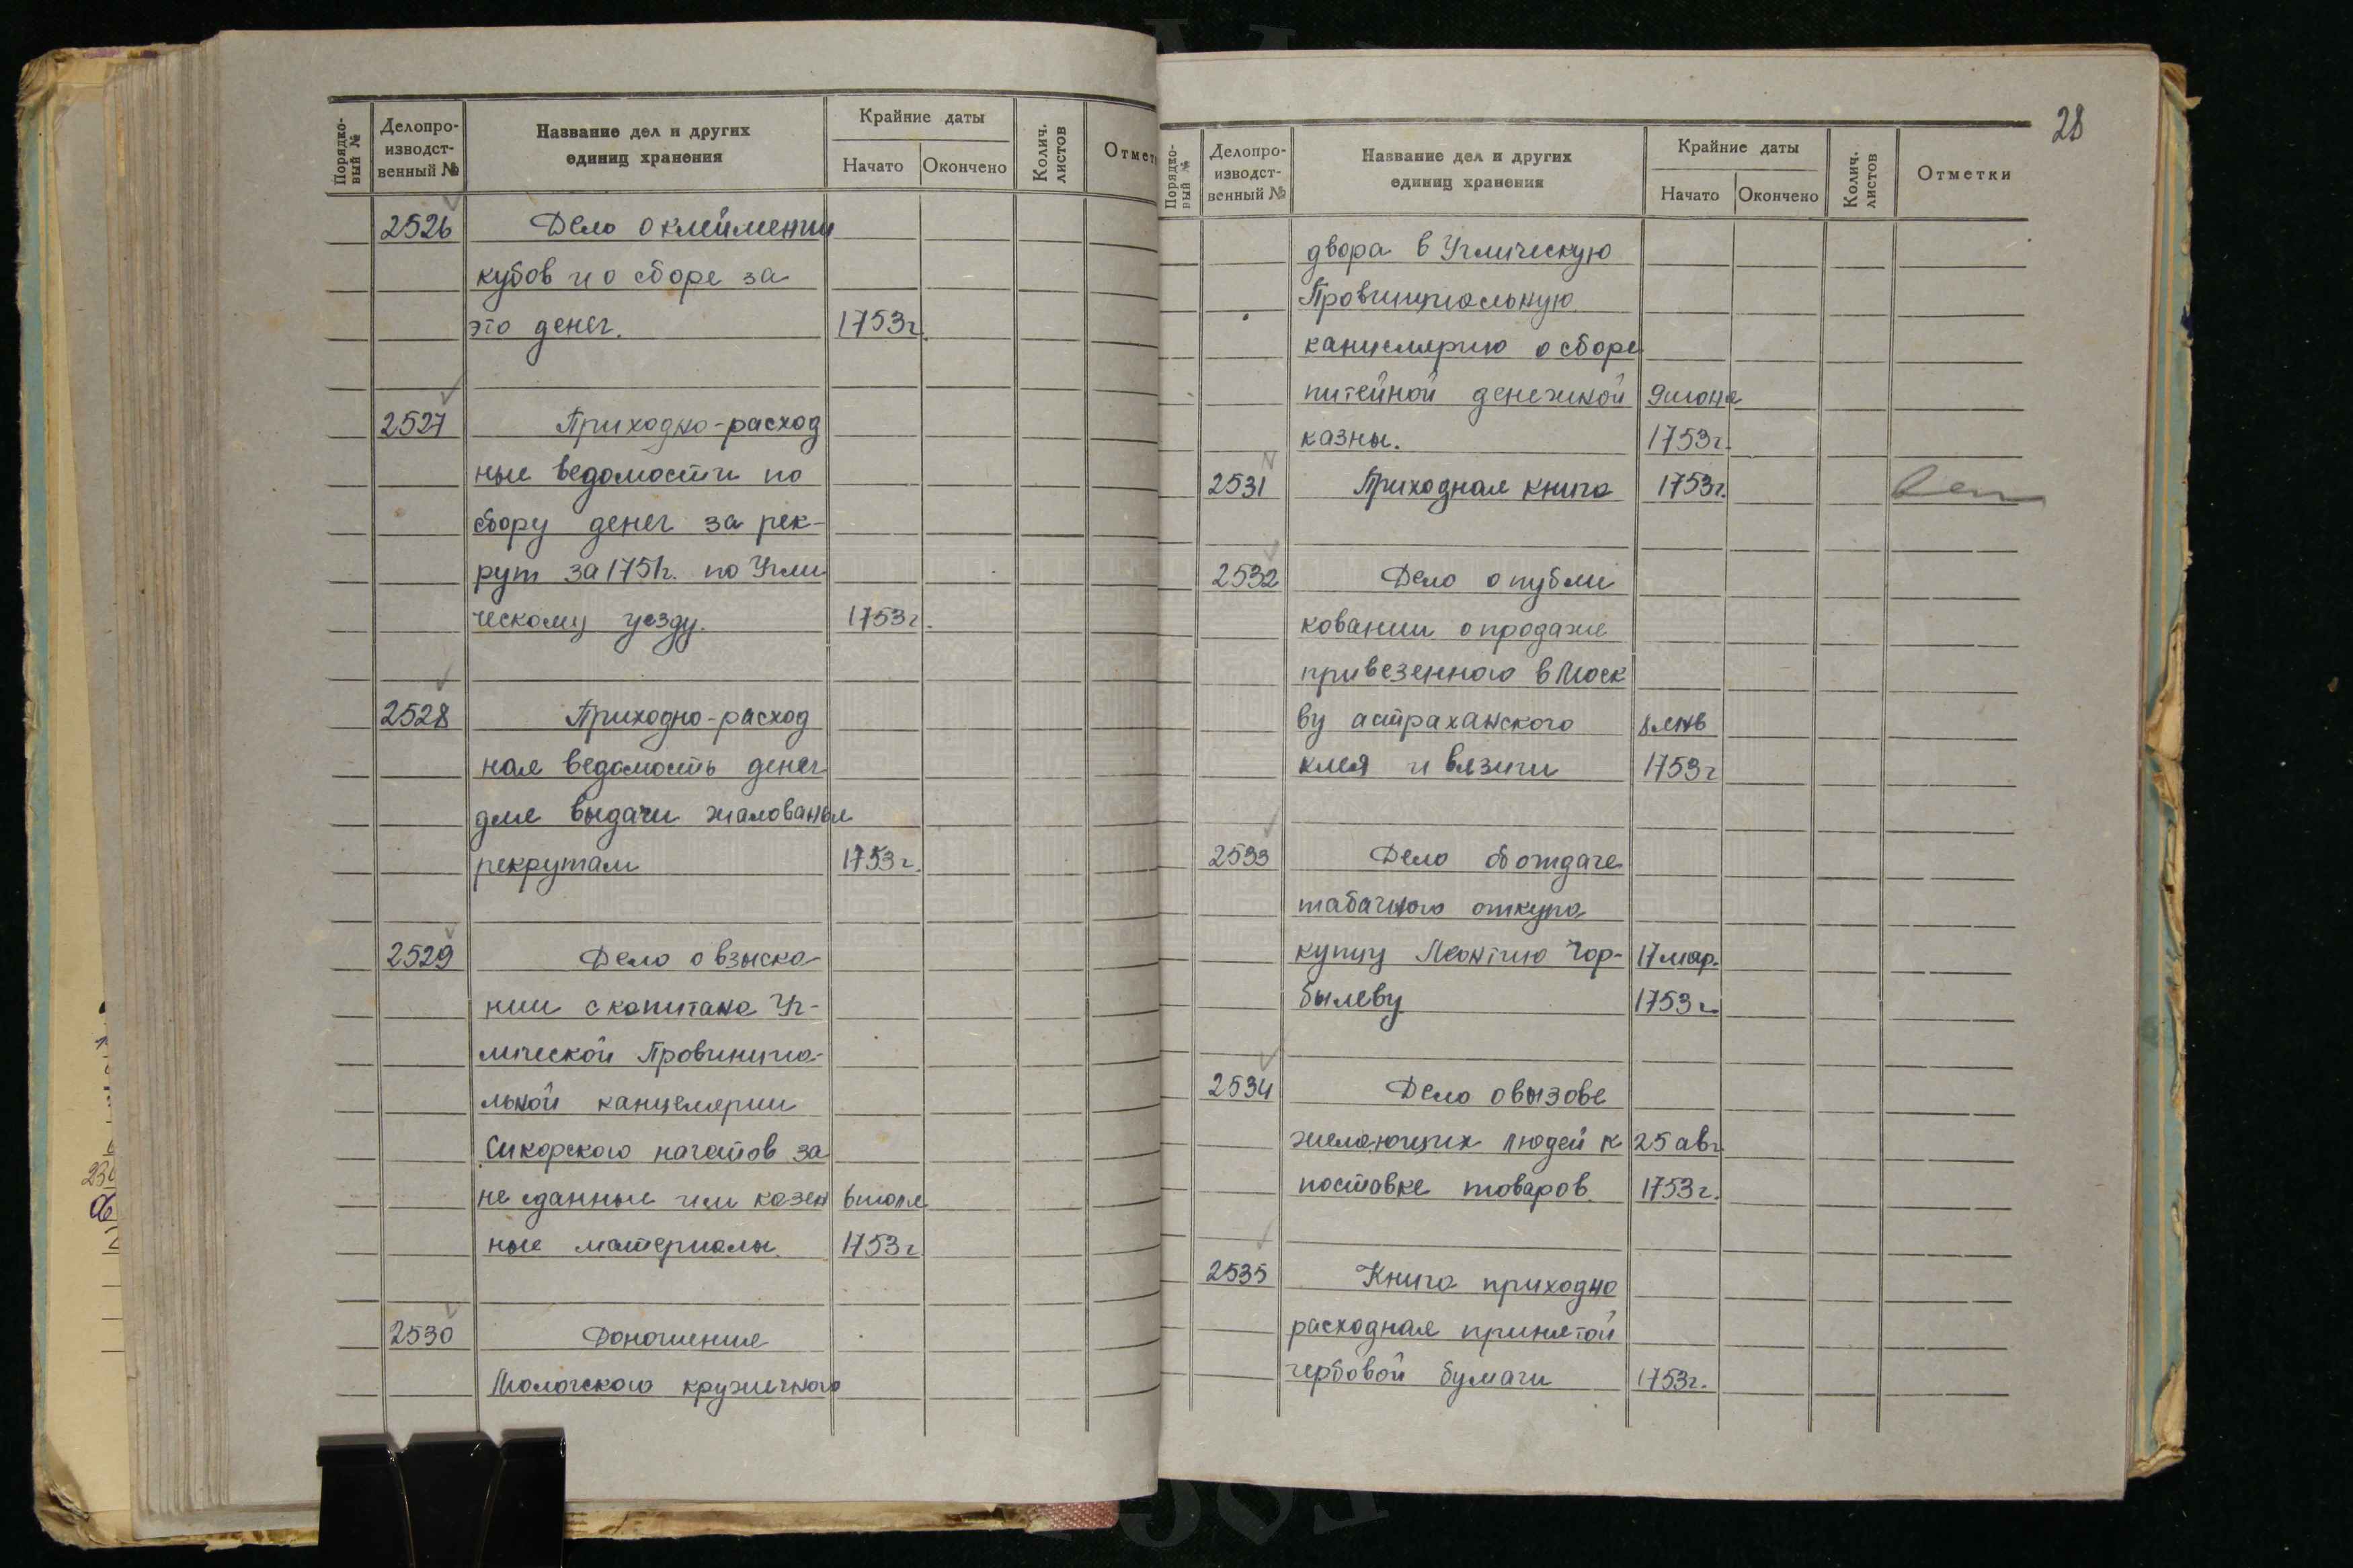 Порядко-
вый №
Делопро-
изводст-
венный №
Название дел и других
единиц хранения
Крайние даты
Начато
Окончено
Колич.
листов
Отмет
2526 Дело о клеймении
кубов и о сборе за
это денег. 1753г.
2527 Приходно-расход
ные ведомости по
сбору денег за рек-
рут за 1751г. по Угли
ческому уезду. 1753г.
2528 Приходно-расход
ная ведомость денег
для выдачи жалованья
рекрутам 1753г.
2529 Дело о взыска-
нии с капитана Уг-
личской Провинциа-
льной канцелярии
Сикорского начетов за
не сданные им казен 6 июля
ные материалы. 1753г
2530 Доношения
Мологского кружечного
28
Порядко-
вый №
Делопро-
изводст-
венный №
Название дел и других
единиц хранения
Крайние даты
Начато
Окончено
Колич.
листов
Отметки
двора в Углическую
Провинциальную
канцелярию о сборе
питейной денежной 9 июня
казны. 1753г.
2531 Приходная книга 1753г.
2532 Дело о публи
ковании о продаже
привезенного в Моск
ву астраханского 8 янв
клея и вязиги 1753г
2533 Дело об отдаче
табачного откупа
купцу Леонтию Гор- 17 мар.
былеву 1753г.
2534 Дело о вызове
желающих людей к 25 авг
поставке товаров. 1753г.
2535 Книга приходно
расходная принятой
гербовой бумаги 1753г.